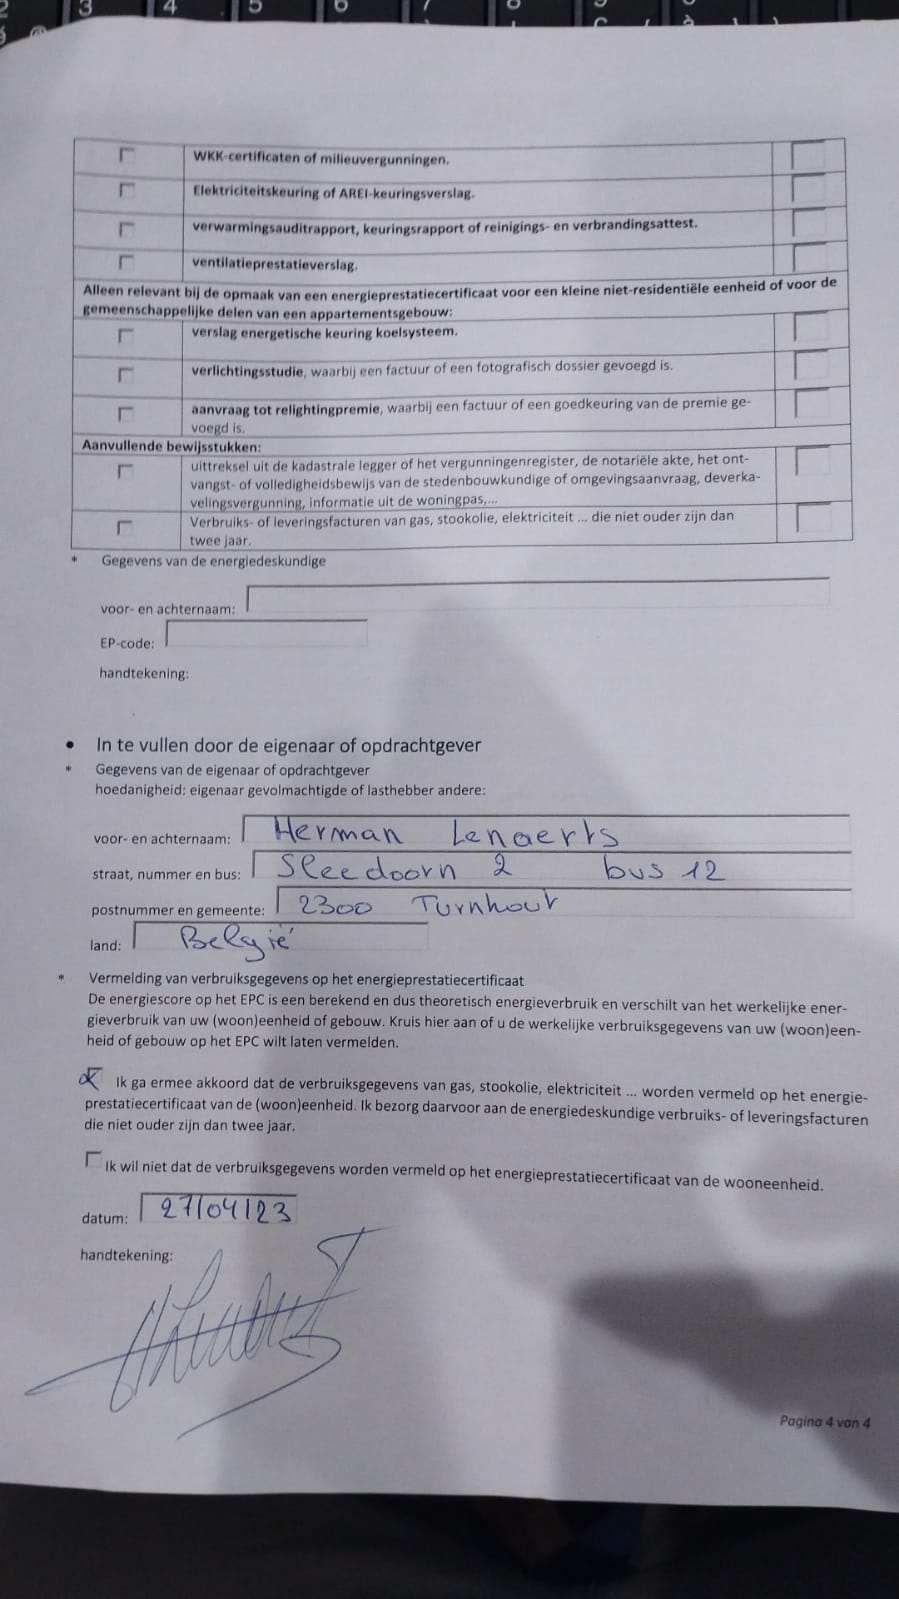 3 4 5 6
WKK-certificaten of milieuvergunningen.
Elektriciteitskeuring of AREI-keuringsverslag.
verwarmingsauditrapport, keuringsrapport of reinigings- en verbrandingsattest.
ventilatieprestatieverslag.
Alleen relevant bij de opmaak van een energieprestatiecertificaat voor een kleine niet-residentiële eenheid of voor de
gemeenschappelijke delen van een appartementsgebouw:
verslag energetische keuring koelsysteem.
verlichtingsstudie, waarbij een factuur of een fotografisch dossier gevoegd is.
aanvraag tot relightingpremie, waarbij een factuur of een goedkeuring van de premie ge-
voegd is.
Aanvullende bewijsstukken:
uittreksel uit de kadastrale legger of het vergunningenregister, de notariële akte, het ont-
vangst- of volledigheidsbewijs van de stedenbouwkundige of omgevingsaanvraag, deverka-
velingsvergunning, informatie uit de woningpas,...
Verbruiks- of leveringsfacturen van gas, stookolie, elektriciteit ... die niet ouder zijn dan
twee jaar.
* Gegevens van de energiedeskundige
voor- en achternaam:
EP-code:
handtekening:
• In te vullen door de eigenaar of opdrachtgever
* Gegevens van de eigenaar of opdrachtgever
hoedanigheid: eigenaar gevolmachtigde of lasthebber andere:
voor- en achternaam: Herman Lenaerts
straat, nummer en bus: Sleedoorn 2 bus 12
postnummer en gemeente: 2300 Turnhout
land: België
* Vermelding van verbruiksgegevens op het energieprestatiecertificaat
De energiescore op het EPC is een berekend en dus theoretisch energieverbruik en verschilt van het werkelijke ener-
gieverbruik van uw (woon)eenheid of gebouw. Kruis hier aan of u de werkelijke verbruiksgegevens van uw (woon)een-
heid of gebouw op het EPC wilt laten vermelden.
Ik ga ermee akkoord dat de verbruiksgegevens van gas, stookolie, elektriciteit ... worden vermeld op het energie-
prestatiecertificaat van de (woon)eenheid. Ik bezorg daarvoor aan de energiedeskundige verbruiks- of leveringsfacturen
die niet ouder zijn dan twee jaar.
Ik wil niet dat de verbruiksgegevens worden vermeld op het energieprestatiecertificaat van de wooneenheid.
datum: 27/04/23
handtekening:
Pagina 4 van 4